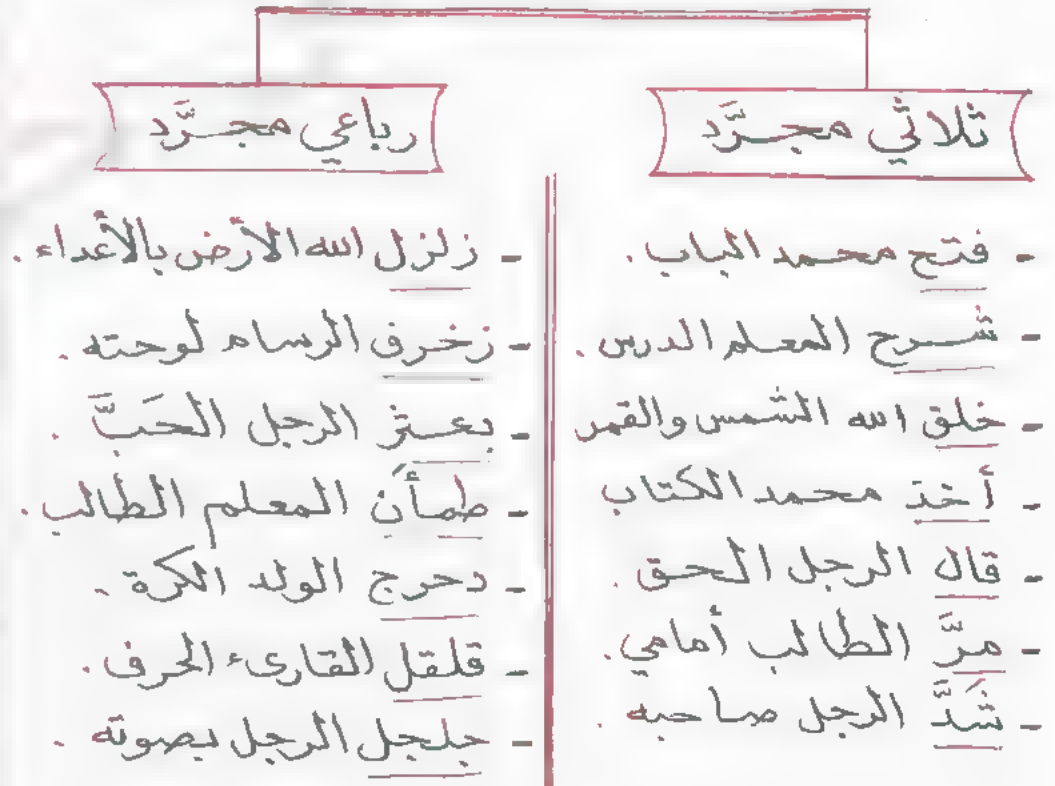 ثلاثي مجرَّد
- فتح محمد الباب.
- شرح المعلم الدرس.
- خلق الله الشمس والقمر
- أخذ محمد الكتاب
- قال الرجل الحق.
- مرَّ الطالب أمامي.
- شَدَّ الرجل صاحبه.
رباعي مجرَّد
- زلزل الله الأرض بالأعداء.
- زخرف الرسام لوحته.
- بعثر الرجل الحَبَّ.
- طمأن المعلم الطالب.
- دحرج الولد الكرة.
- قلقل القارىء الحرف.
- جلجل الرجل بصوته.